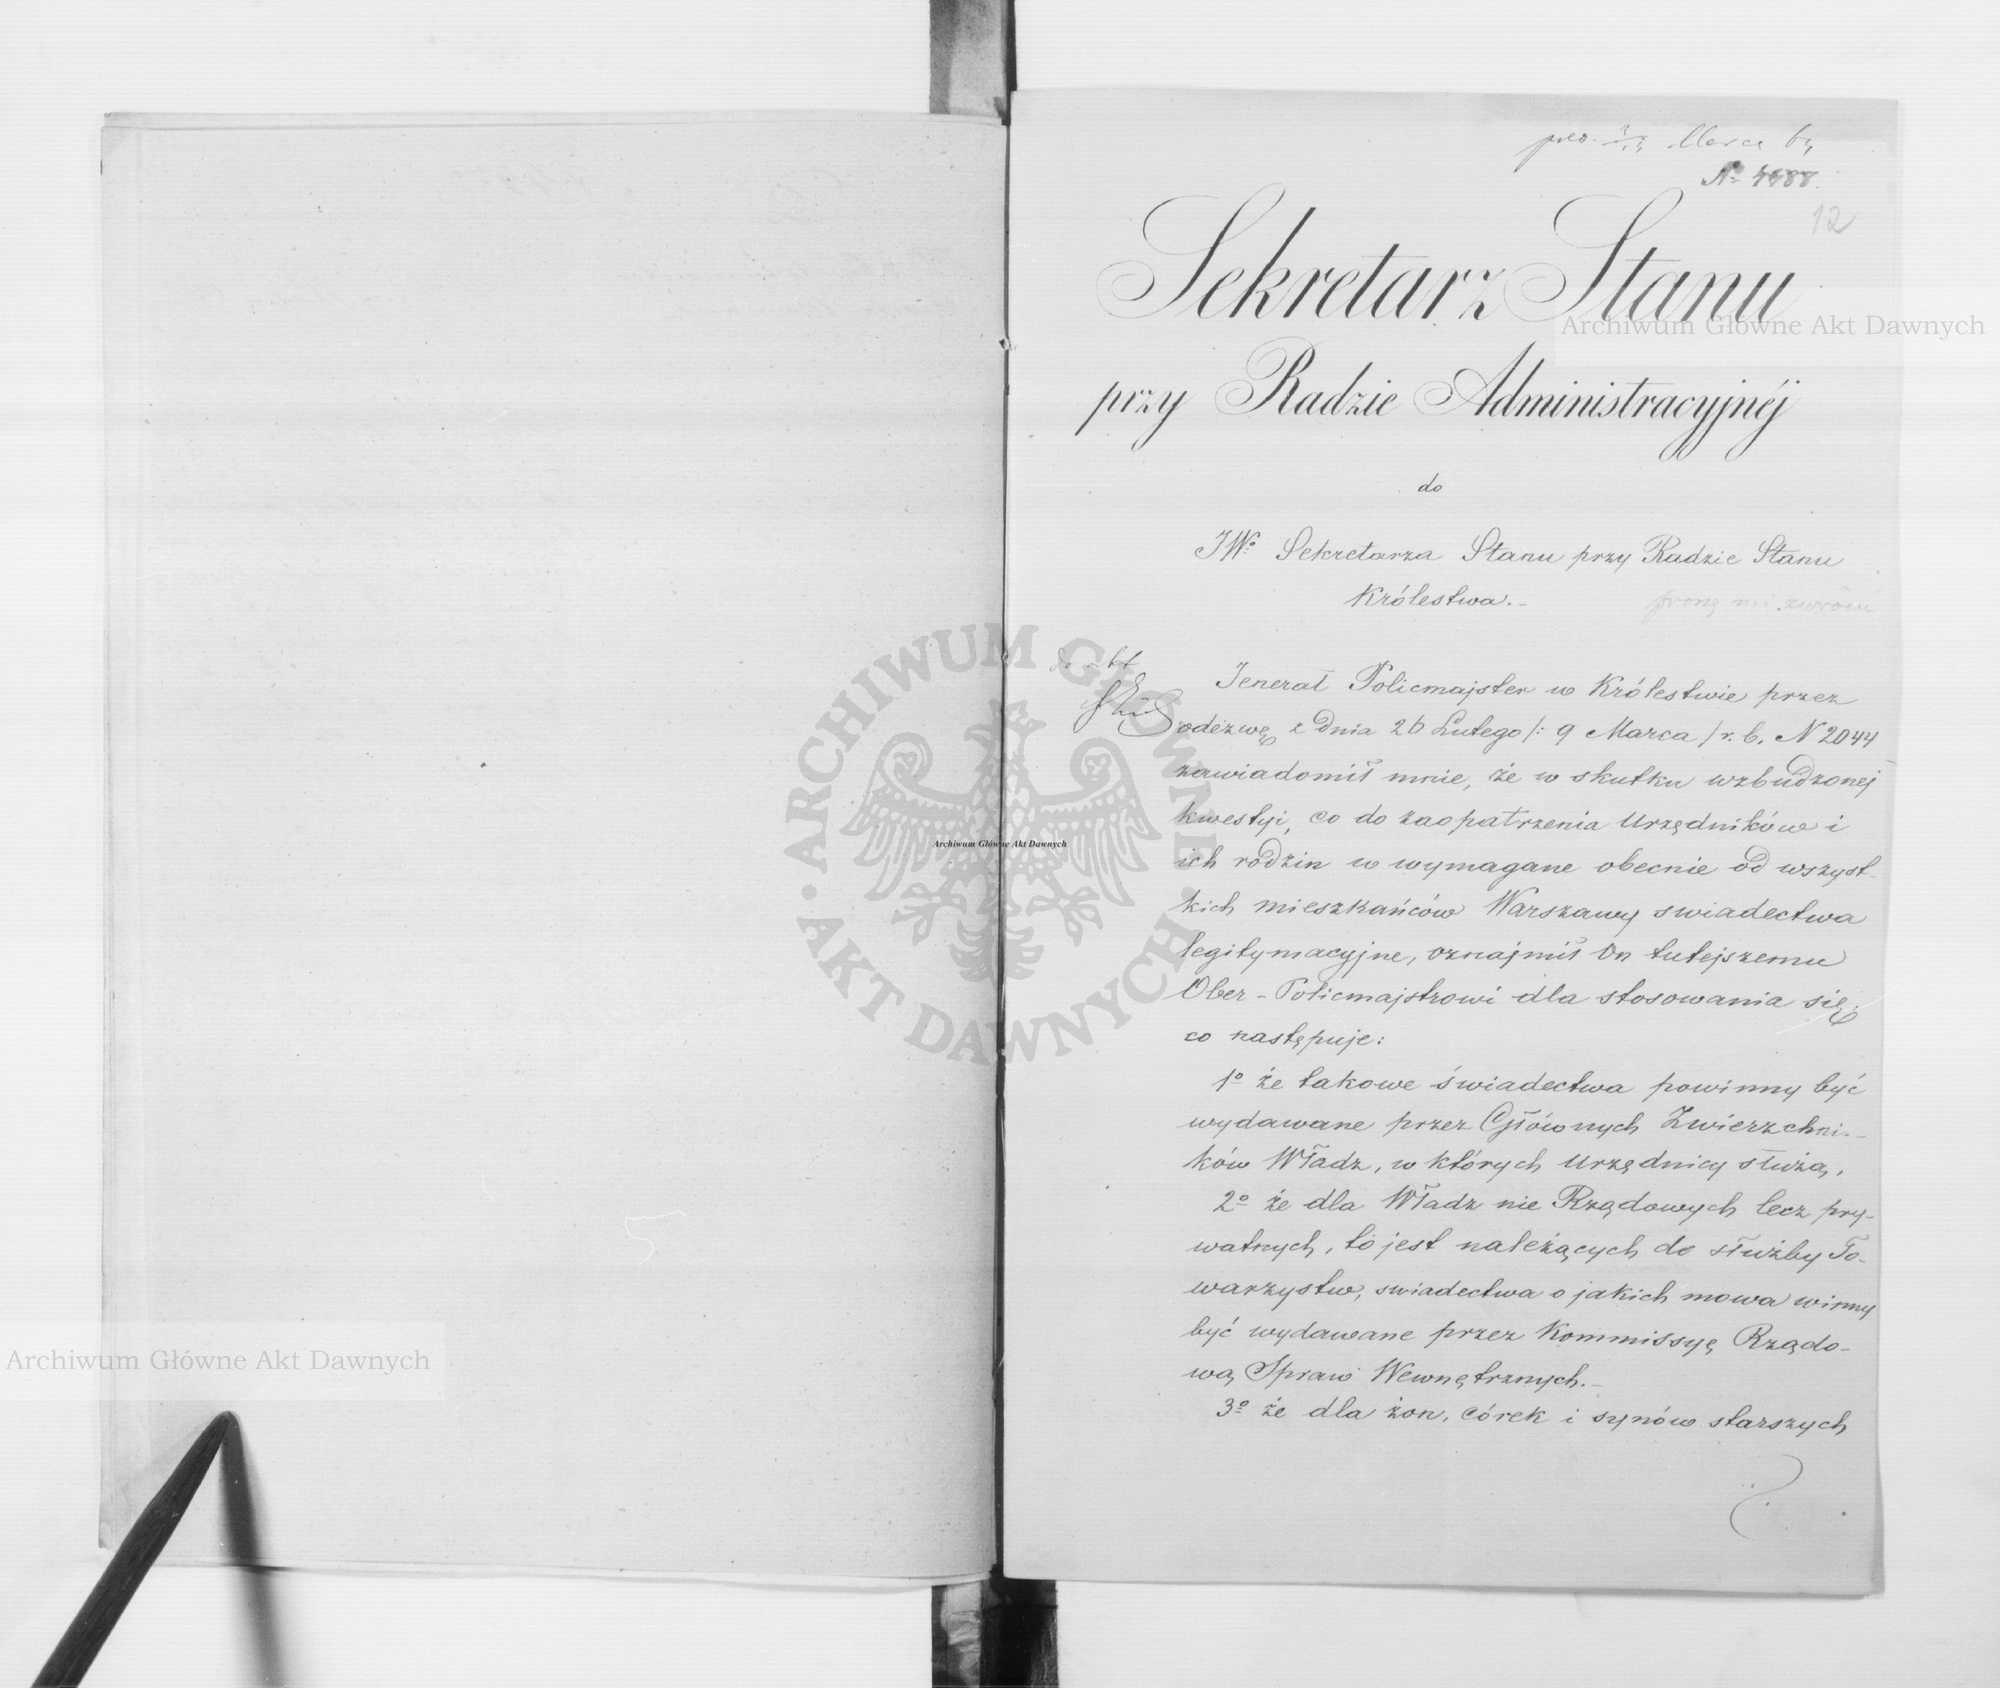 Marca
№ 4488.
12
Sekretarz Stanu
przy Radzie Administracyjnéj
do
JWo Sekretarza Stanu przy Radzie Stanu
Królestwa.
do akt
Jenerał Policmajster w Królestwie przez
odezwę z dnia 26 Lutego /: 9 Marca / r. b. N 2044
zawiadomił mnie, że w skutku wzbudzonej
kwestyi, co do zaopatrzenia Urzędników i
ich rodzin w wymagane obecnie od wszyst-
kich mieszkańców Warszawy swiadectwa
legitymacyjne, oznajmił On tutejszemu
Ober-Policmajstrowi dla stosowania się
co następuje:
1o że takowe świadectwa powinny być
wydawane przez Głównych Zwierzchni-
ków Władz, w których Urzędnicy służą,
2o że dla Władz nie Rządowych lecz pry-
watnych, to jest należących do służby To-
warzystw, swiadectwa o jakich mowa winny
być wydawane przez Kommissyę Rządo-
wą Spraw Wewnętrznych.
3o że dla żon, córek i synów starszych
Archiwum Główne Akt Dawnych
ARCHIWUM GŁÓWNE · AKT DAWNYCH ·
Archiwum Główne Akt Dawnych
Archiwum Główne Akt Dawnych